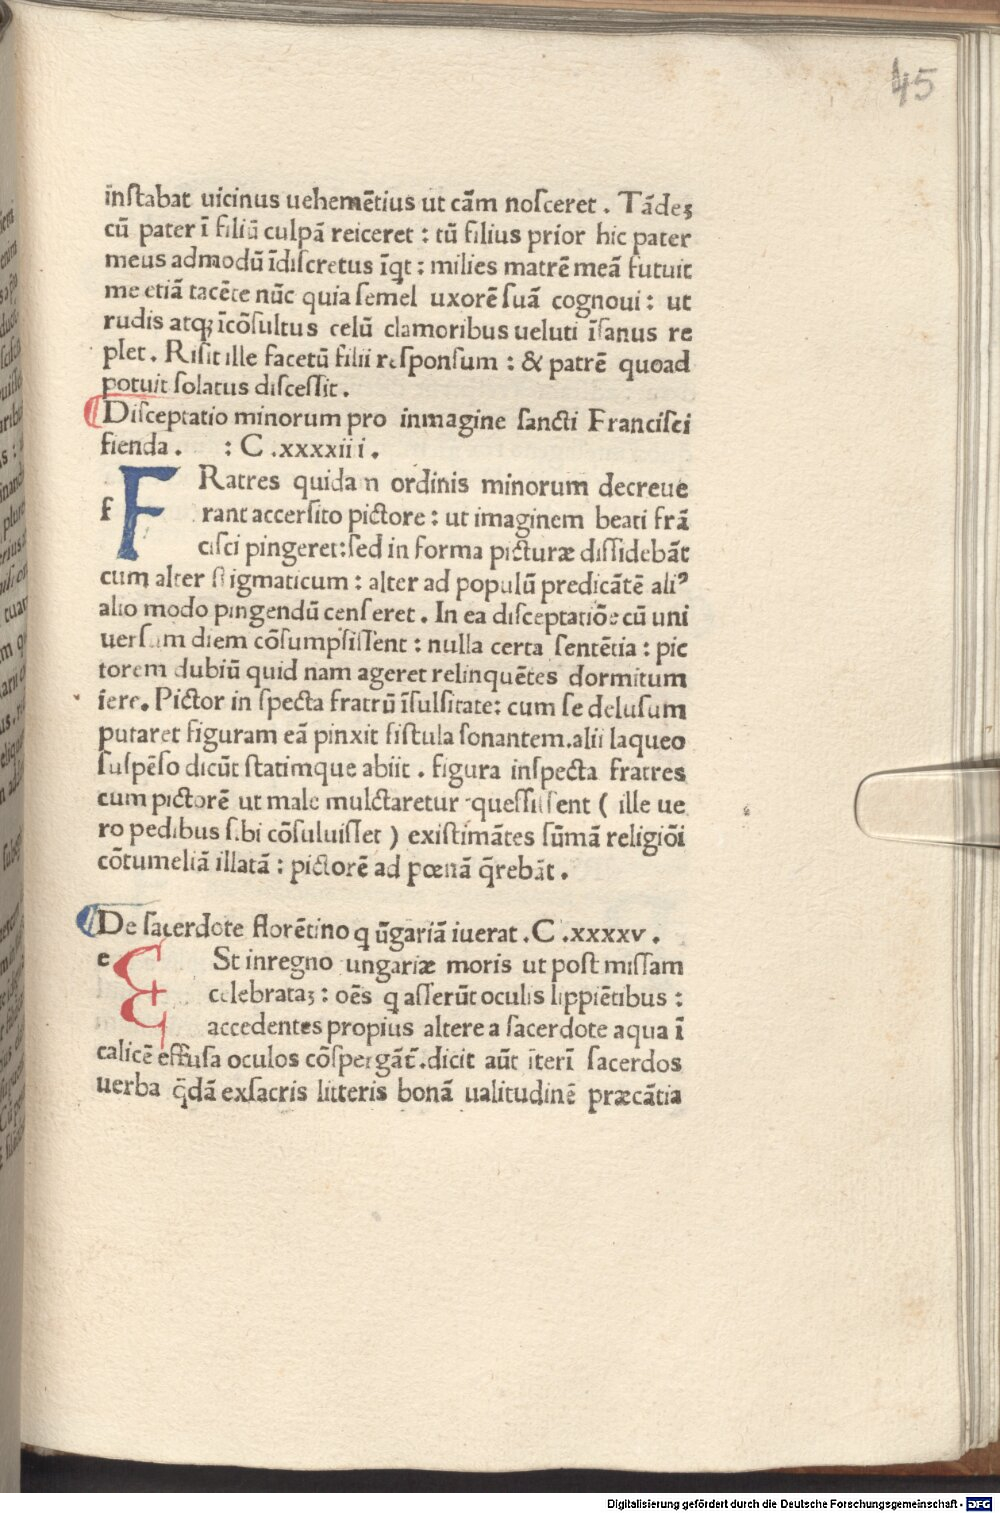 45
instabat uicinus uehemētius ut cām noſceret . Tādeꝫ
cū pater ī filiū culpā reiceret : tū filius prior hic pater
meus admodū īdiſcretus īqt : milies matrē meā futuit
me etiā tacēte nūc quia ſemel uxorē ſuā cognoui : ut
rudis atqꝫ īcōſultus celū clamoribus ueluti īſanus re
plet . Riſit ille facetū filii reſponſum : & patrē quoad
potuit ſolatus diſceſſit .
Diſceptatio minorum pro inmagine ſancti Franciſci
fienda . : C .xxxxiiii .
FRatres quidam ordinis minorum decreue
f rant accerſito pictore : ut imaginem beati frā
ciſci pingeret:ſed in forma picturæ diſſidebāt
cum alter ſtigmaticum : alter ad populū predicātē aliꝰ
alio modo pingendū cenſeret . In ea diſceptatiōe cū uni
uerſum diem cōſumpſiſſent : nulla certa ſentētia : pic
torem dubiū quid nam ageret relinquētes dormitum
iere. Pictor in ſpecta fratrū īſulſitate: cum ſe deluſum
putaret figuram eā pinxit fiſtula ſonantem.alii laqueo
ſuſpēſo dicūt ſtatimque abiit . figura inſpecta fratres
cum pictorē ut male mulctaretur queſſiſſent ( ille ue
ro pedibus ſibi cōſuluiſſet ) exiſtimātes ſūmā religiōi
cōtumeliā illatā : pictorē ad pœnā q̄rebāt .
De ſacerdote florētino ꝗ ūgariā iuerat .C .xxxxv .
e ESt inregno ungariæ moris ut poſt miſſam
celebrataꝫ : oēs ꝗ aſſerūt oculis lippiētibus :
accedentes propius altere a ſacerdote aqua ī
calicē effuſa oculos cōſpergāt̄ .dicit aūt īterī ſacerdos
uerba q̄dā exſacris litteris bonā ualitudinē præcātia
Digitalisierung gefördert durch die Deutsche Forschungsgemeinschaft - DFG